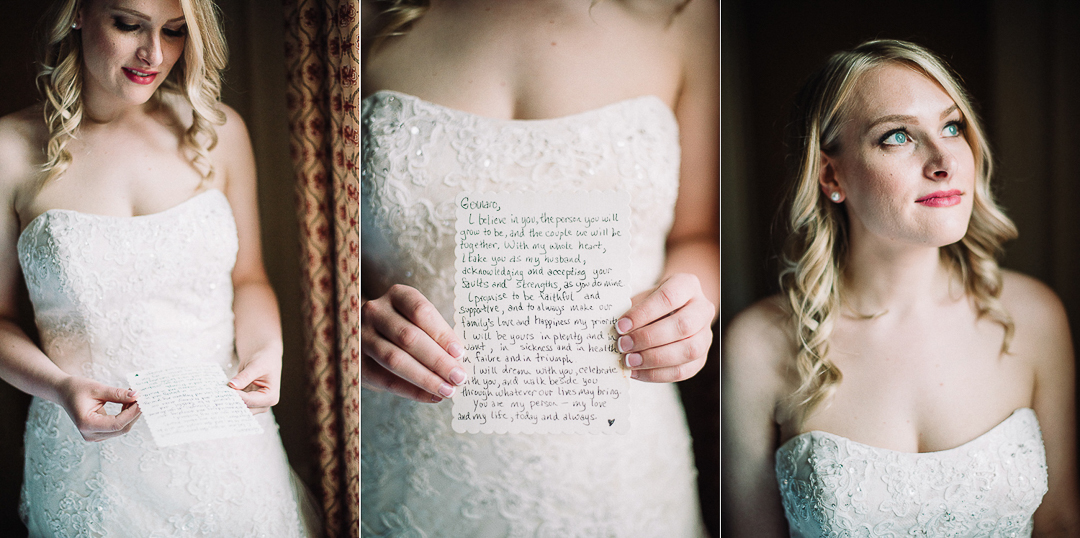 Gennaro,
I believe in you, the person you will
grow to be, and the couple we will be
together. With my whole heart,
I take you as my husband,
acknowledging and accepting your
faults and strengths, as you do mine.
I promise to be faithful and
supportive, and to always make our
family's love and happiness my priority
I will be yours in plenty and in
want, in sickness and in health
in failure and in triumph.
I will dream with you, celebrate
with you, and walk beside you
through whatever our lives may bring.
You are my person - my love
and my life, today and always.